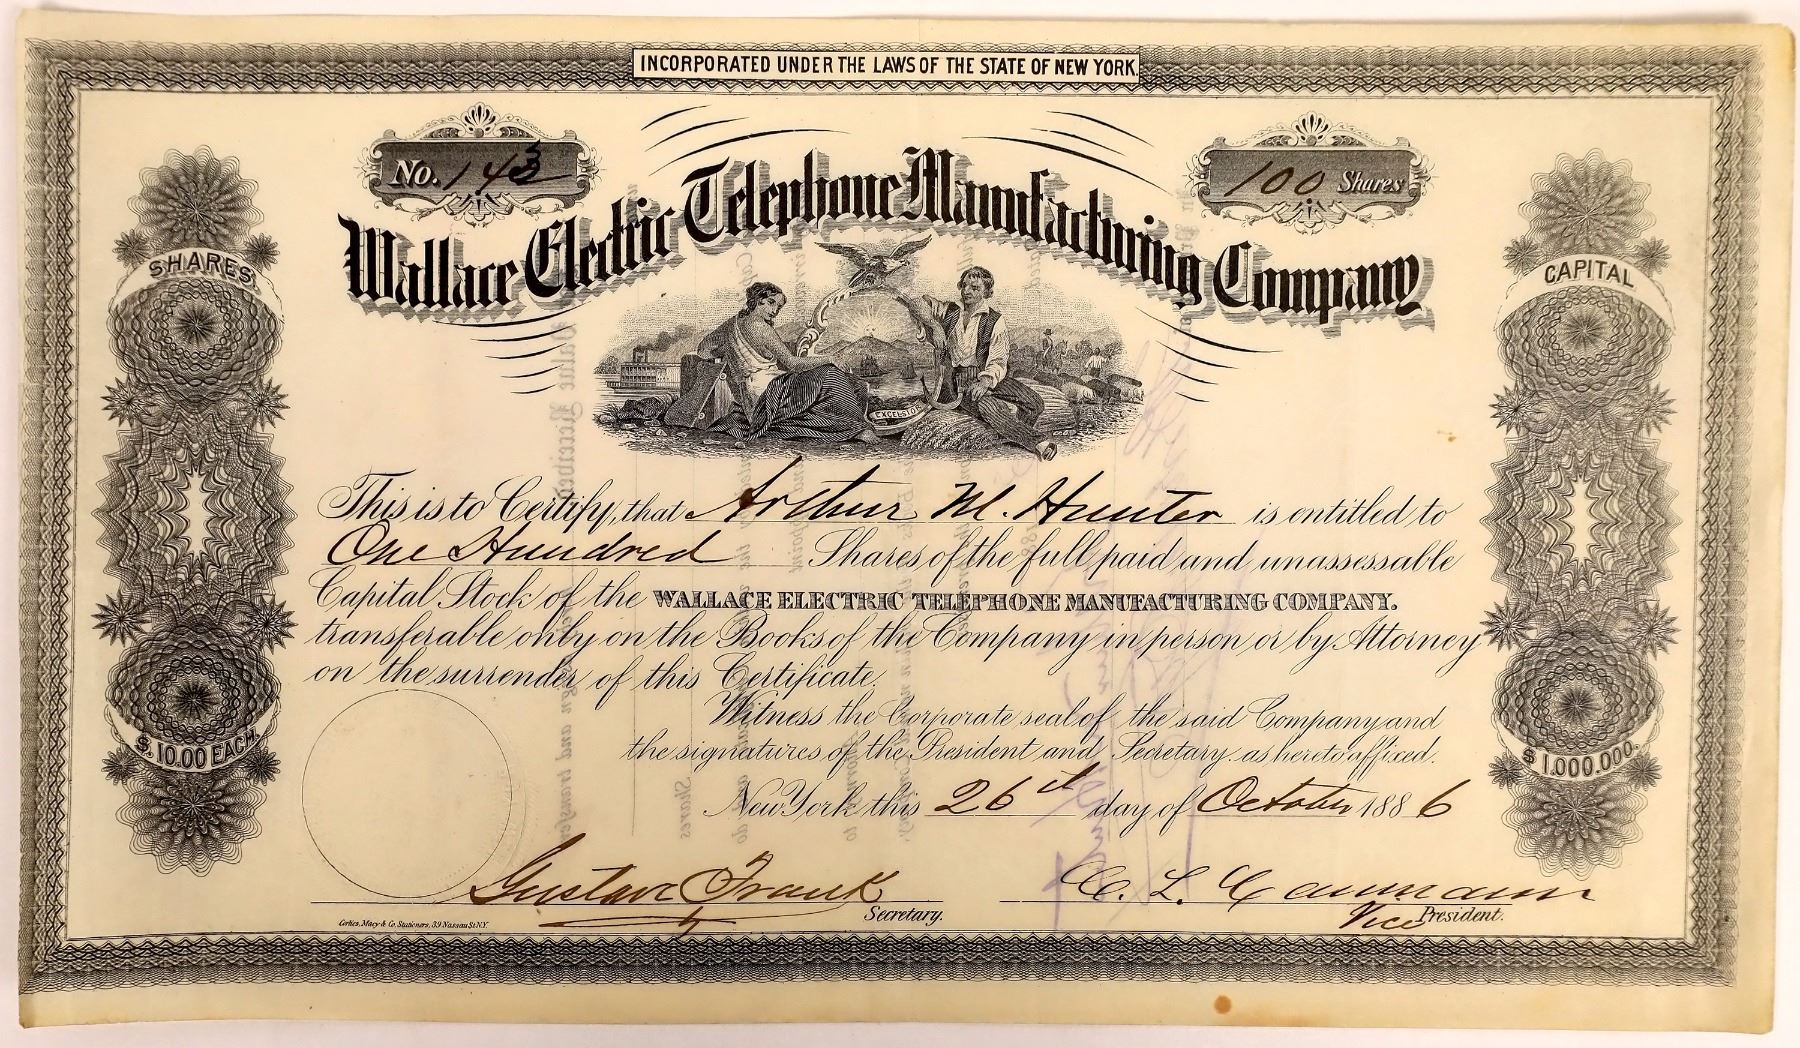 INCORPORATED UNDER THE LAWS OF THE STATE OF NEW YORK.
No. 143
100 Shares
Wallace Electric Telephone Manufacturing Company
SHARES
$.10.00 EACH.
CAPITAL
$1.000.000.
EXCELSIOR
This is to Certify, that Arthur M. Hunter is entitled to
One Hundred Shares of the full paid and unassessable
Capital Stock of the WALLACE ELECTRIC TELEPHONE MANUFACTURING COMPANY.
transferable only on the Books of the Company in person or by Attorney
on the surrender of this Certificate.
Witness the Corporate seal of the said Company and
the signatures of the President and Secretary. as hereto affixed.
New York this 26th day of October 1886
Gustave Frank
Secretary.
C. L.
Vice President.
Corlies, Macy & Co. Stationers, 39 Nassau St. N.Y.